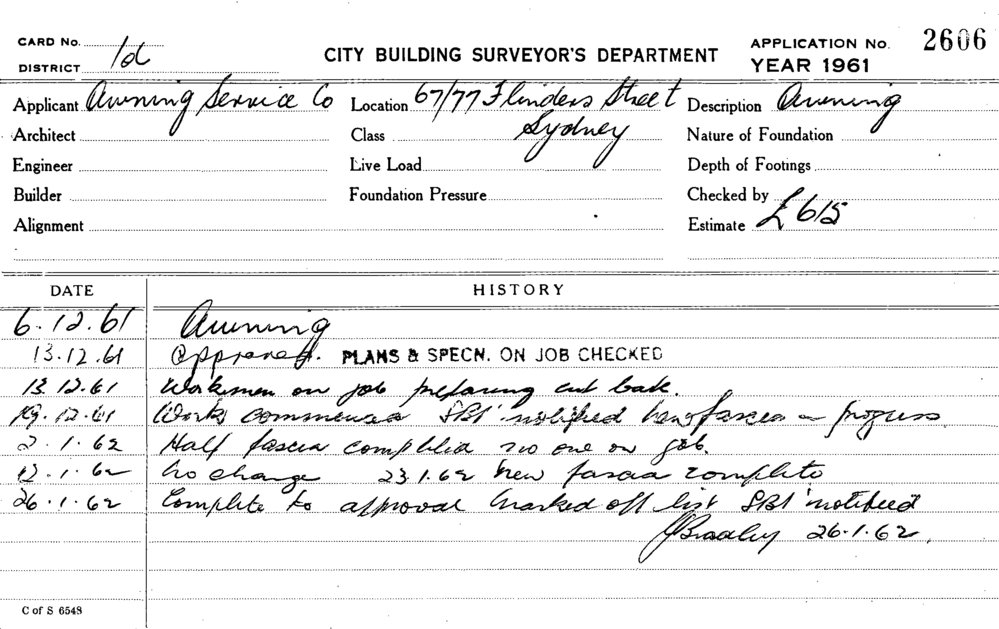 CARD No.
DISTRICT 1d
CITY BUILDING SURVEYOR'S DEPARTMENT
APPLICATION No. 2606
YEAR 1961
Applicant Awning Service Co
Location 67/77 Flinders Street
Sydney
Description Awning
Architect
Class
Nature of Foundation
Engineer
Live Load
Depth of Footings
Builder
Foundation Pressure
Checked by
Alignment
Estimate £615
DATE HISTORY
6.12.61 Awning
13.12.61 Approved. PLANS & SPECN. ON JOB CHECKED
13.12.61 Workmen on job preparing cut back.
19.12.61 Works commenced SBI notified new fascia in progress
2.1.62 Half fascia completed no one on job.
12.1.62 No change 23.1.62 New fascia complete
26.1.62 Complete to approval marked off list SBI notified
JBradley 26.1.62.
C of S 6548